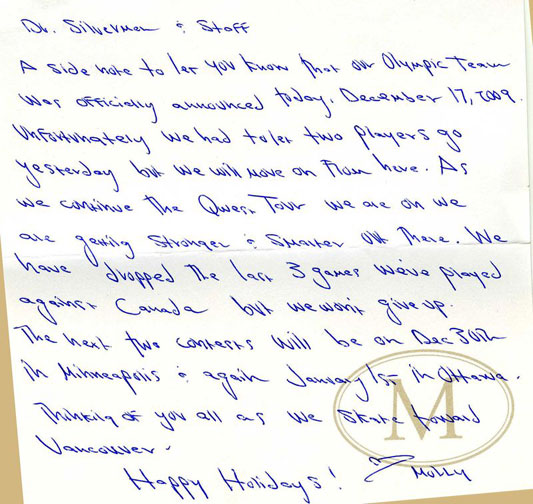 Dr. Silverman & Staff
A side note to let you know that our Olympic Team
was officially announced today, December 17, 2009.
Unfortunately we had to let two players go
yesterday but we will move on from here. As
we continue the Qwest Tour we are on we
are getting stronger & smarter out there. We
have dropped the last 3 games we've played
against Canada but we won't give up.
The next two contests will be on Dec 30th
in Minneapolis & again January 1st in Ottawa.
Thinking of you all as we skate toward
Vancouver.
M
Happy Holidays!
Molly